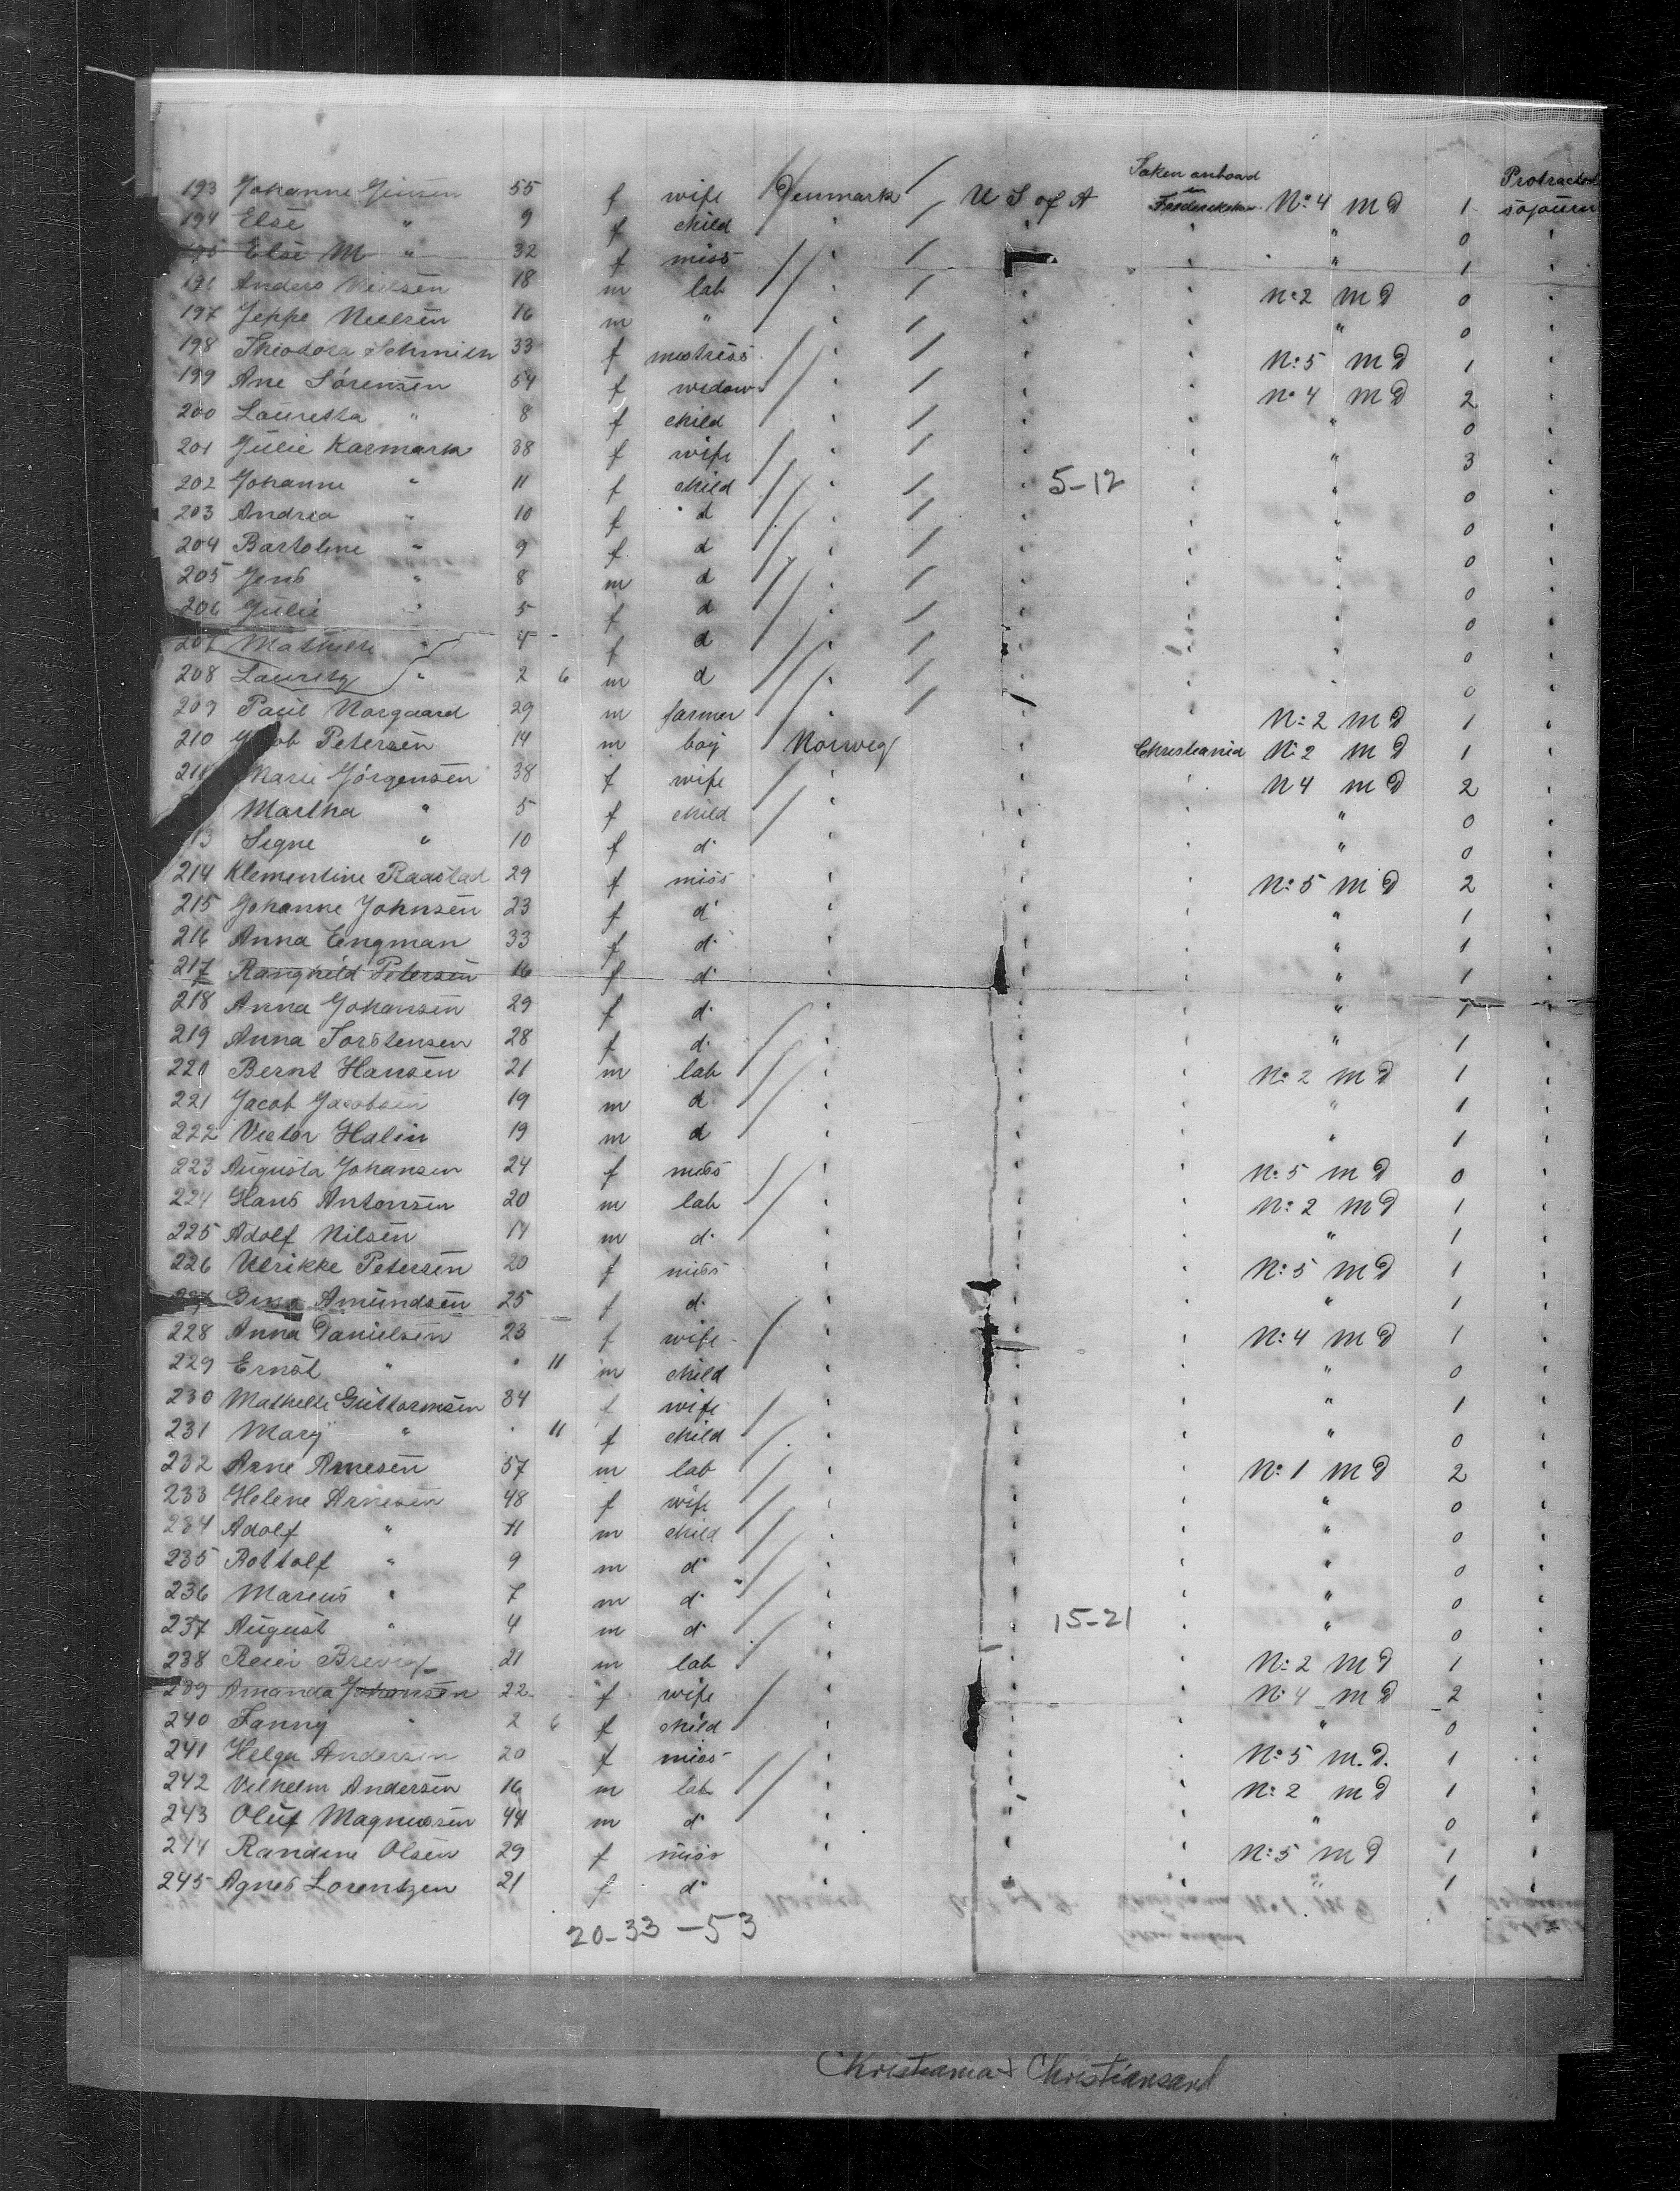 Taken onboard Protracted
193 Johanne Jensen 55 f wife Denmark U S of A in Frederiksha. No: 4 m D 1 sojourn
194 Else " 9 f child " " 0
195 Else M " 32 f miss " " 1
196 Anders Nielsen 18 m lab " No: 2 m D 0
197 Jeppe Nielsen 16 m " " " 0
198 Theodora 33 f mistress " No: 5 m D 1
199 Ane Sörensen 54 f widow " No 4 m D 2
200 Lauretta " 8 f child " " 0
201 Julie Kaermark 38 f wife " " 3
202 Johanne " 11 f child " 5-12 " 0
203 Andrea " 10 f d " " 0
204 Bartoline " 9 f d " " 0
205 Jens " 8 m d " " 0
206 Julie " 5 f d " " 0
207 Mathilde " 4 f d " " 0
208 Lauritz " 2 6 m d " " 0
209 Paul Norgaard 29 m farmer " No: 2 m D 1
210 Petersen 14 m boy Norweg Christiania No 2 m D 1
211 Marie Jörgensen 38 f wife " N 4 m D 2
Martha " 5 f child " " 0
13 Signe " 10 f do " " 0
214 Klementine Raastad 29 f miss " No: 5 m D 2
215 Johanne Johnsen 23 f do " " 1
216 Anna Engman 33 f do " " 1
217 Ranghild Petersen 16 f do " " 1
218 Anna Johansen 29 f do " " 1
219 Anna Torstensen 28 f do " " 1
220 Bernt Hansen 21 m lab " No: 2 m D 1
221 Jacob Jacobsen 19 m d " " 1
222 Victor Halin 19 m d " " 1
223 Augusta Johansen 24 f miss " No: 5 m D 0
224 Hans Antonsen 20 m lab " No: 2 m D 1
225 Adolf Nilsen 14 m do " " 1
226 Ulrikke Petersen 20 f miss " No: 5 m D 1
227 Gina Amundsen 25 f do " " 1
228 Anna Danielsen 23 f wife " No: 4 m D 1
229 Ernst " " 11 m child " " 0
230 Mathilde Guttormsen 34 f wife " " 1
231 Mary " " 11 f child " " 0
232 Arne Arnesen 57 m lab " No: 1 m D 2
233 Helene Arnesen 48 f wife " " 0
234 Adolf " 11 m child " " 0
235 Rottolf " 9 m do " " 0
236 Marius " 7 m do " " 0
237 August " 4 m do " 15-21 " 0
238 Reier Brevig 21 m lab " No: 2 m D 1
239 Amanda Johansen 22 f wife " No 4 m D 2
240 Fanny " 2 6 f child " " 0
241 Helga Andersen 20 f miss " No 5 m. D. 1
242 Vilhelm Andersen 16 m lab " No: 2 m D 1
243 Oluf Magnusen 44 m do " " 0
244 Randine Olsen 29 f miss " No: 5 m D 1
245 Agnes Lorentzen 21 f do " " 1
20-33-53
Christiania + Christiansand